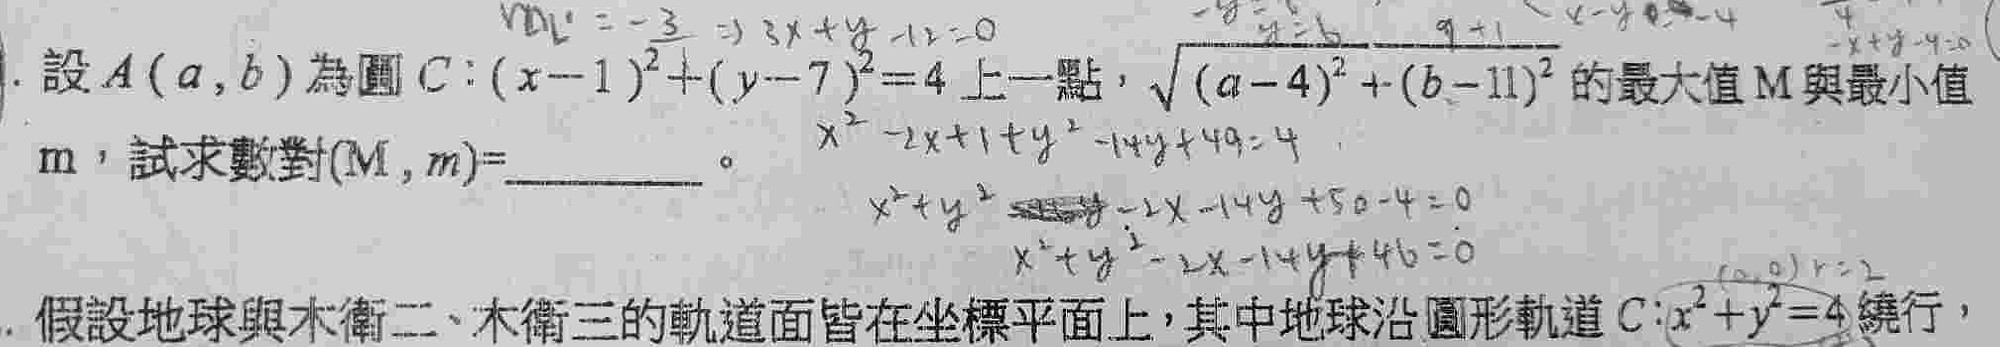 mL' = -3 => 3x+y-12=0
y=6
9+1
x-y -4
-x+y-4=0
設 A ( a , b ) 為圓 C：(x－1)²＋(y－7)²＝4 上一點，√(a－4)²＋(b－11)² 的最大值 M 與最小值
m，試求數對(M , m)=________。
x² -2x+1+y² -14y+49=4
x²+y² -2x-14y+50-4=0
x²+y²-2x-14y+46=0
(0,0) r=2
假設地球與木衛二、木衛三的軌道面皆在坐標平面上，其中地球沿圓形軌道 C：x²＋y²＝4 繞行，